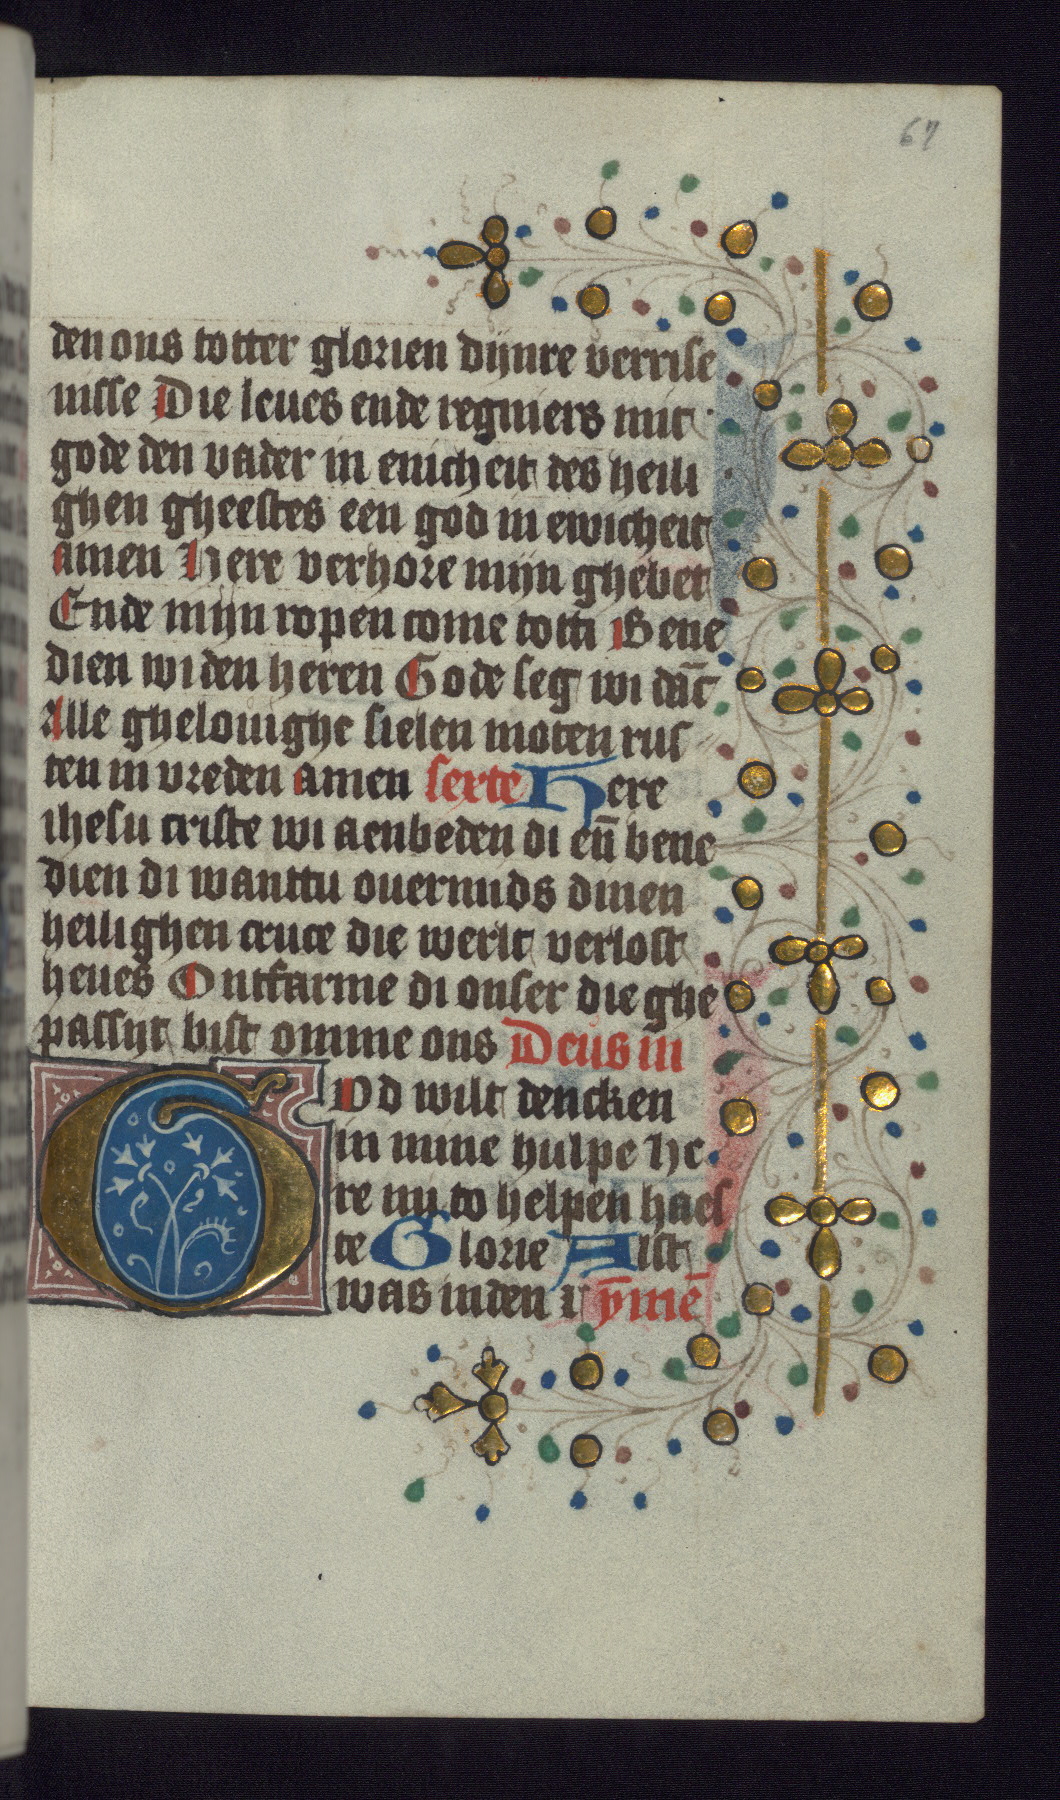 67
den ons totter glorien dijnre verrise
nisse Die leues ende regniers mit
gode den vader in enicheit des heili
ghen gheestes een god in ewicheit
amen Here verhore mijn ghebet
Ende mijn ropen come totti Bene
dien wi den heren Gode seg wi dāc
Alle ghelouighe sielen moten rus
ten in vreden amen sexte Here
ihesu criste wi aenbeden di eñ bene
dien di wanttu ouermids dinen
heilighen cruce die werlt verlost
heues Ontfarme di onser die ghe
passijt bist omme ons Deus in
GOd wilt dencken
in mine hulpe he
re nu to helpen haes
te Glorie Alst
was inden y ȳmē